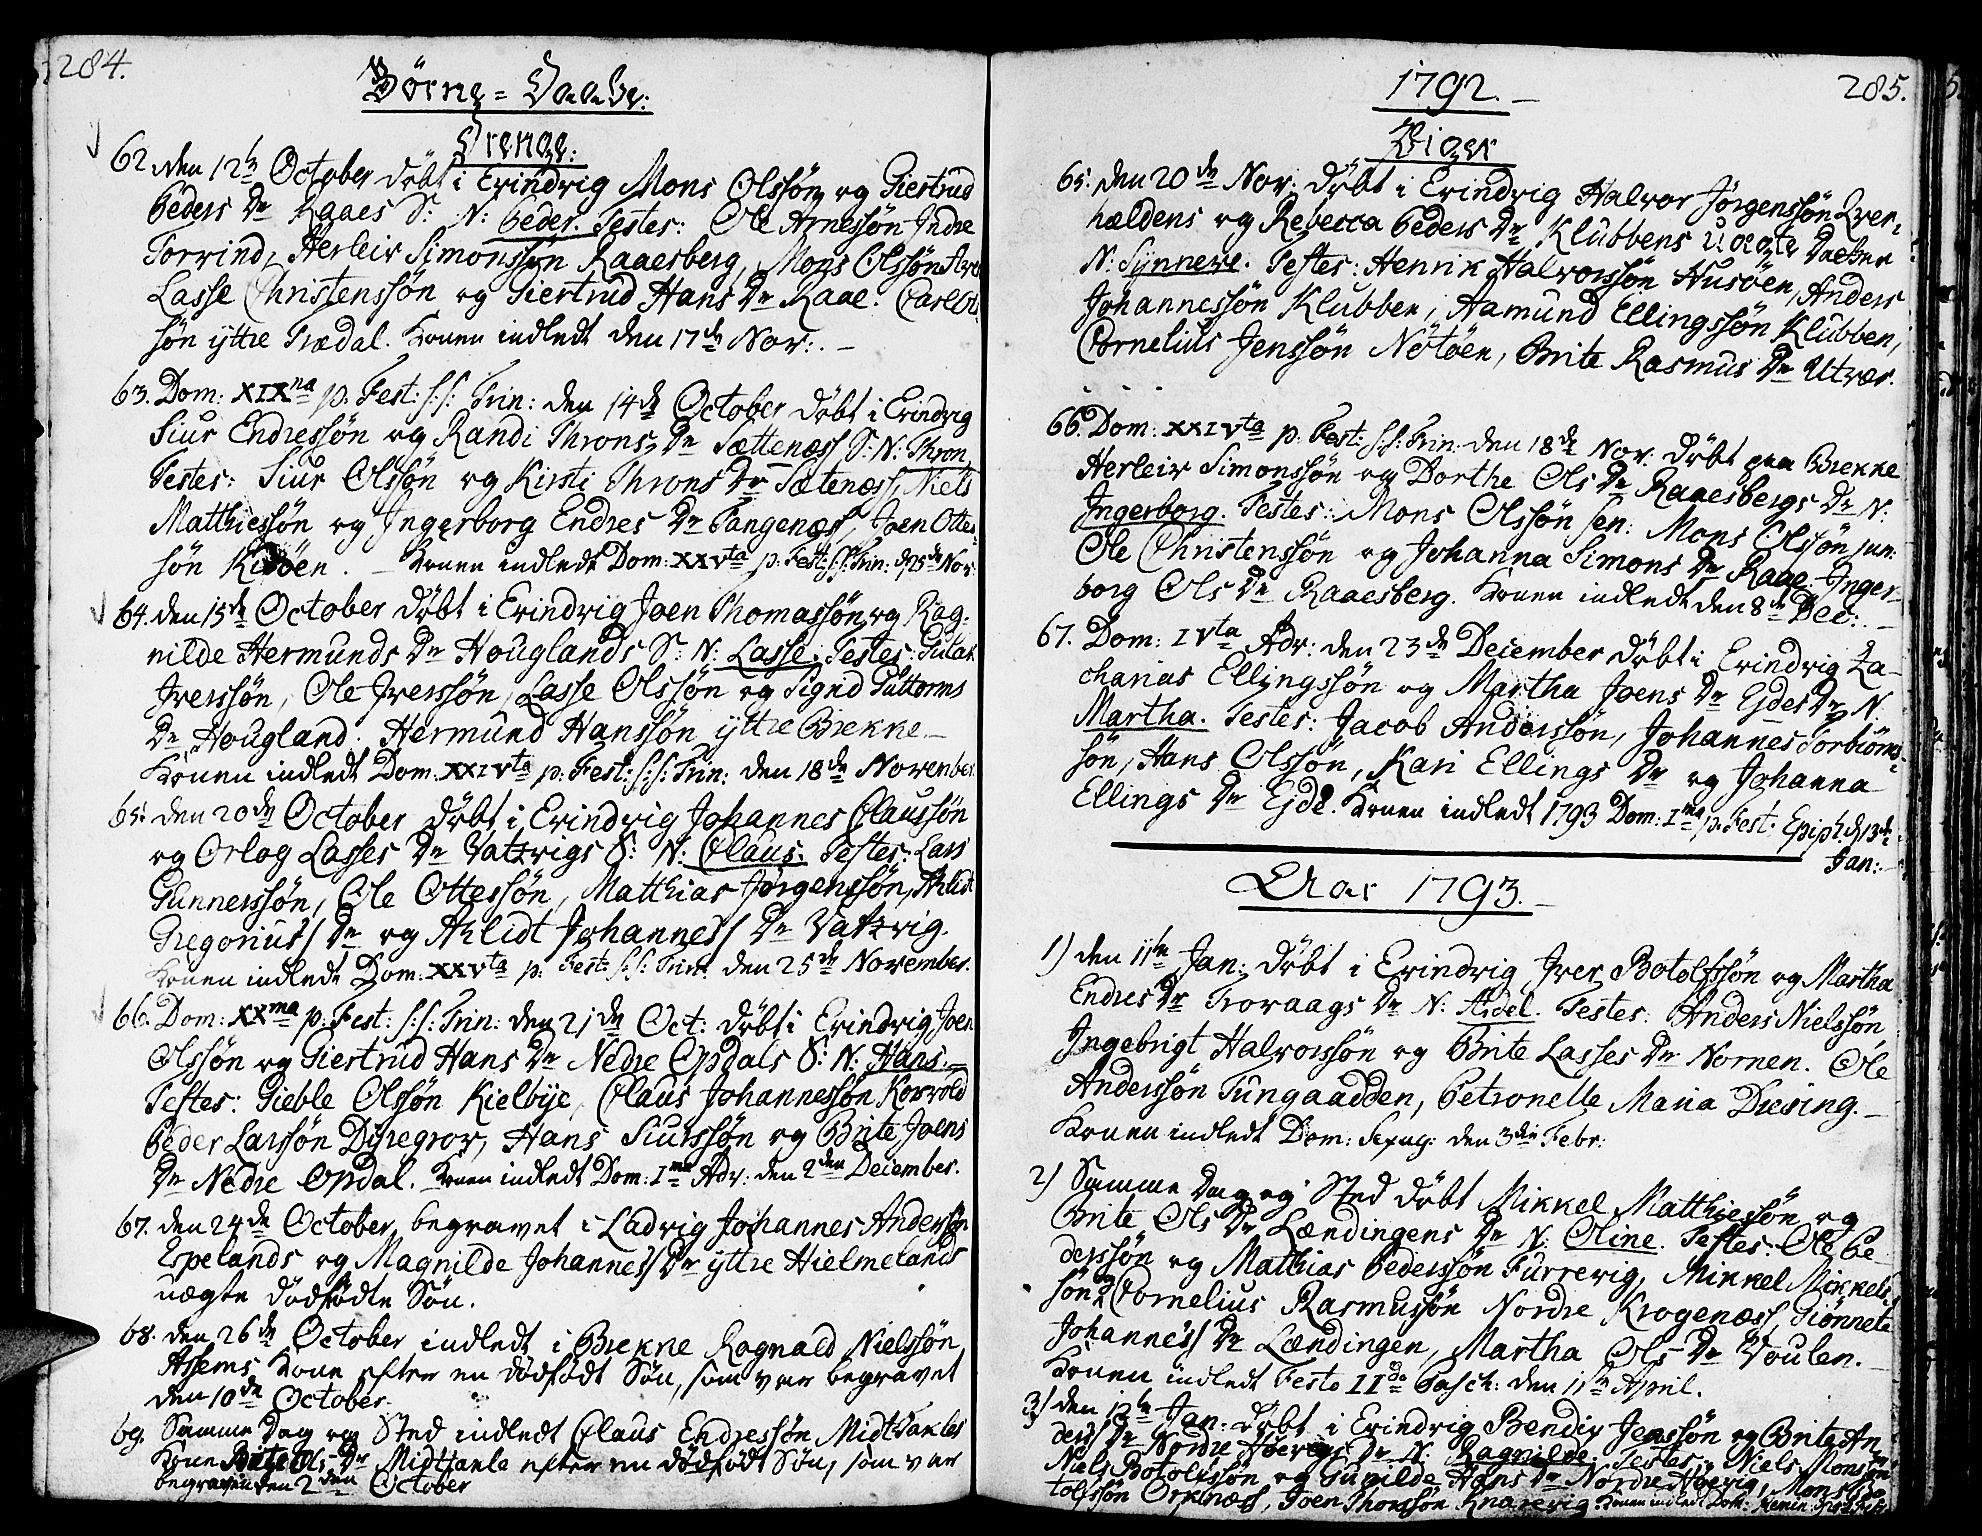 284.
Börne = Daabe:
Drenge:
62 den 12te October döbt i Eeindvig Mons Olssön og Giertrud
Peders Dr Raaes S: N: Peder. Testes: Ole Arnessön Indre
Torvind, Herleiv Simonssön Raaesberg, Mons Olssön
Lasse Christenssön og Giertrud Hans Dr Raae. Carl Ols
sön yttre Trædal. Konen indledt den 17de Nov:. —
63. Dom: XIXna p. Fest: s:s: Trin: den 14de October döbt i Eeindvig
Siur Endressön og Randi Throns Dr Sættenæss S: N: Thron
Testes: Siur Olssön og Kirsti Throns Dr Sætenæss, Niels
Matthiessön og Ingerborg Endres Dr Tangenæss, Joen Ottes-
sön Kidöen. — Konen indledt Dom: XXVta p. Fest: s:s: Trin: d. 25de Nov:
64. den 15de October döbt i Eeindvig Joen Thomassön og Rag-
nilde Hermunds Dr Houglands S: N: Lasse. Testes: Gulak
Iverssön, Ole Iverssön, Lasse Olssön og Sigrid Guttorms
Dr Hougland. Hermund Hanssön yttre Brekke —
Konen indledt Dom: XXIVta p: Fest: s:s: Trin: den 18de November.
65. den 20de October döbt i Eeindvig Johannes Claussön
og Orlog Lasses Dr Vatzvigs S: N: Claus. Testes: Lars
Gunnerssön, Ole Ottessön, Matthias Jörgenssön, Ahlidt
Gregorius's Dr og Ahlidt Johannes's Dr Vatzvig.
Konen indledt Dom: XXVta p: Fest: s:s: Trin: den 25de November.
66. Dom: XXma p: Fest: s:s: Trin: den 21de Oct: döbt i Eeindvig Joen
Olssön og Giertrud Hans Dr Nedre Opdals S: N: Hans. —
Testes: Gieble Olssön Kielbye, Claus Johannessön Korvold
Peder Larssön Dyregrov, Hans Siurssön og Brite Joens
Dr Nedre Opdal. Konen indledt Dom: Ima Adv: den 2den December.
67. den 24de October, begravet i Ladvig Johannes Anderssön
Espelands og Magnilde Johannes's Dr yttre Hielmelands
uægte dödfödte Sön.
68. den 26de October indledt i Brekke Rognald Nielssön
Assems Kone efter en dödfödt Sön, som var begravet
den 10de October.
69. Samme Dag og Sted indledt Claus Endressön Midttanles
Kone Brite Ols Dr Midttanle efter en dödfödt Sön, som var
begraven den 2den October
1792. —
285.
Piger
65. den 20de Nov: döbt i Eeindvig Halvor Jörgenssön Qver-
hældens og Rebecca Peders Dr Klubbens uægte Datter
N: Synneve. Testes: Henrik Halvorssön Husöen, Anders
Johannessön Klubben, Aamund Ellingssön Klubben,
Cornelius Jenssön Nötöen, Brite Rasmus Dr Utvær.
66. Dom: XXIVta p: Fest: s:s: Trin: den 18de Nov: döbt paa Brekke
Herleiv Simonssön og Dorthe Ols Dr Raaesbergs Dr N:
Ingerborg. Testes: Mons Olssön sen: Mons Olssön jun:
Ole Christenssön og Johanna Simons Dr Raae. Inger-
borg Ols Dr Raaesberg. Konen indledt den 8de Dec:. —
67. Dom: IVta Adv: den 23de December döbt i Eeindvig Za-
charias Ellingssön og Martha Joens Dr Ejdes Dr N:
Martha. Testes: Jacob Anderssön, Johannes Torbiörns-
sön, Hans Olssön, Kari Ellings Dr og Johanna
Ellings Dr Ejde. Konen indledt 1793 Dom: Ima p: Fest: Epiph: d. 13de
Jan:
Aar 1793. —
1) den 11te Jan: döbt i Eeindvig Iver Botolfssön og Martha
Endres Dr Trovaags Dr N: Aadel. Testes: Anders Nielssön
Ingebrigt Halvorssön og Brite Lasses Dr Nornen. Ole
Anderssön Tungaadden, Petronelle Maria Dresing. —
Konen indledt Dom: Sexag: den 3die Febr:
2) Samme Dag og Sted döbt Mikkel Matthiessön og
Brite Ols Dr Lændingens Dr N: Oline. Testes: Ole Pe-
derssön og Mathias Pederssön Furrevig, Mikkel Mikkels-
sön, Cornelius Rasmussön Nordre Krogenæss, Giönneta
Johannes's Dr Lændingen, Martha Ols Dr Voulen. —
Konen indledt Festo IIda Pasch: den 11te April.
3) den 12te Jan: döbt i Eeindvig Bendix Jenssön og Brite An-
ders's Dr Nordre Höevigs Dr N: Ragnilde. Testes: Niels Monssön
Niels Botolfssön og Gunilde Hans Dr Nordre Höevig, Mons Bo-
tolfssön Orknæss, Joen Thorssön Knarvig. Konen indledt Dom: